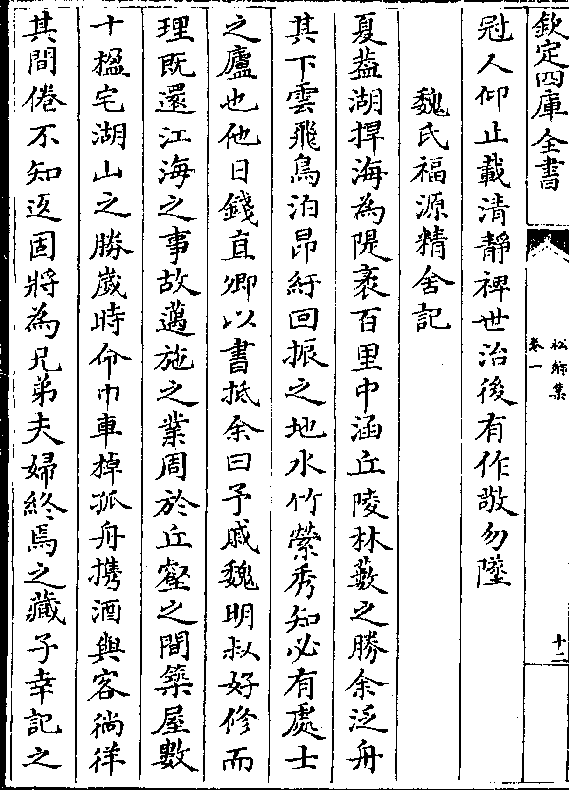 欽定四庫全書
松鄉集
卷一
十二
冠人仰止載清靜禆世治後有作敬勿墜
魏氏福源精舍記
夏蓋湖捍海為隄袤百里中涵丘陵林藪之勝余泛舟
其下雲飛鳥泊昂紆回振之地水竹縈秀知必有處士
之廬也他日錢直卿以書抵余曰予戚魏明叔好修而
理既還江海之事故邁施之業周於丘壑之間築屋數
十楹宅湖山之勝歲時命巾車棹孤舟携酒與客徜徉
其間倦不知返固將為兄弟夫婦終焉之藏子幸記之